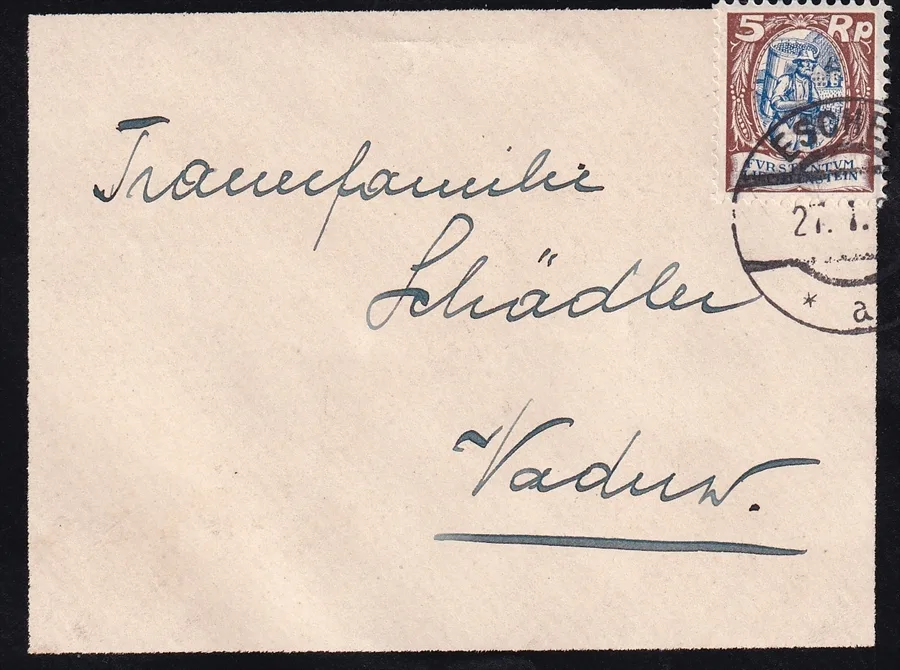 5 Rp
ESCHE
FVRSTENTVM
LIECHTENSTEIN
27. 1.
* a
Trauerfamilie
Schädler
Vaduz.